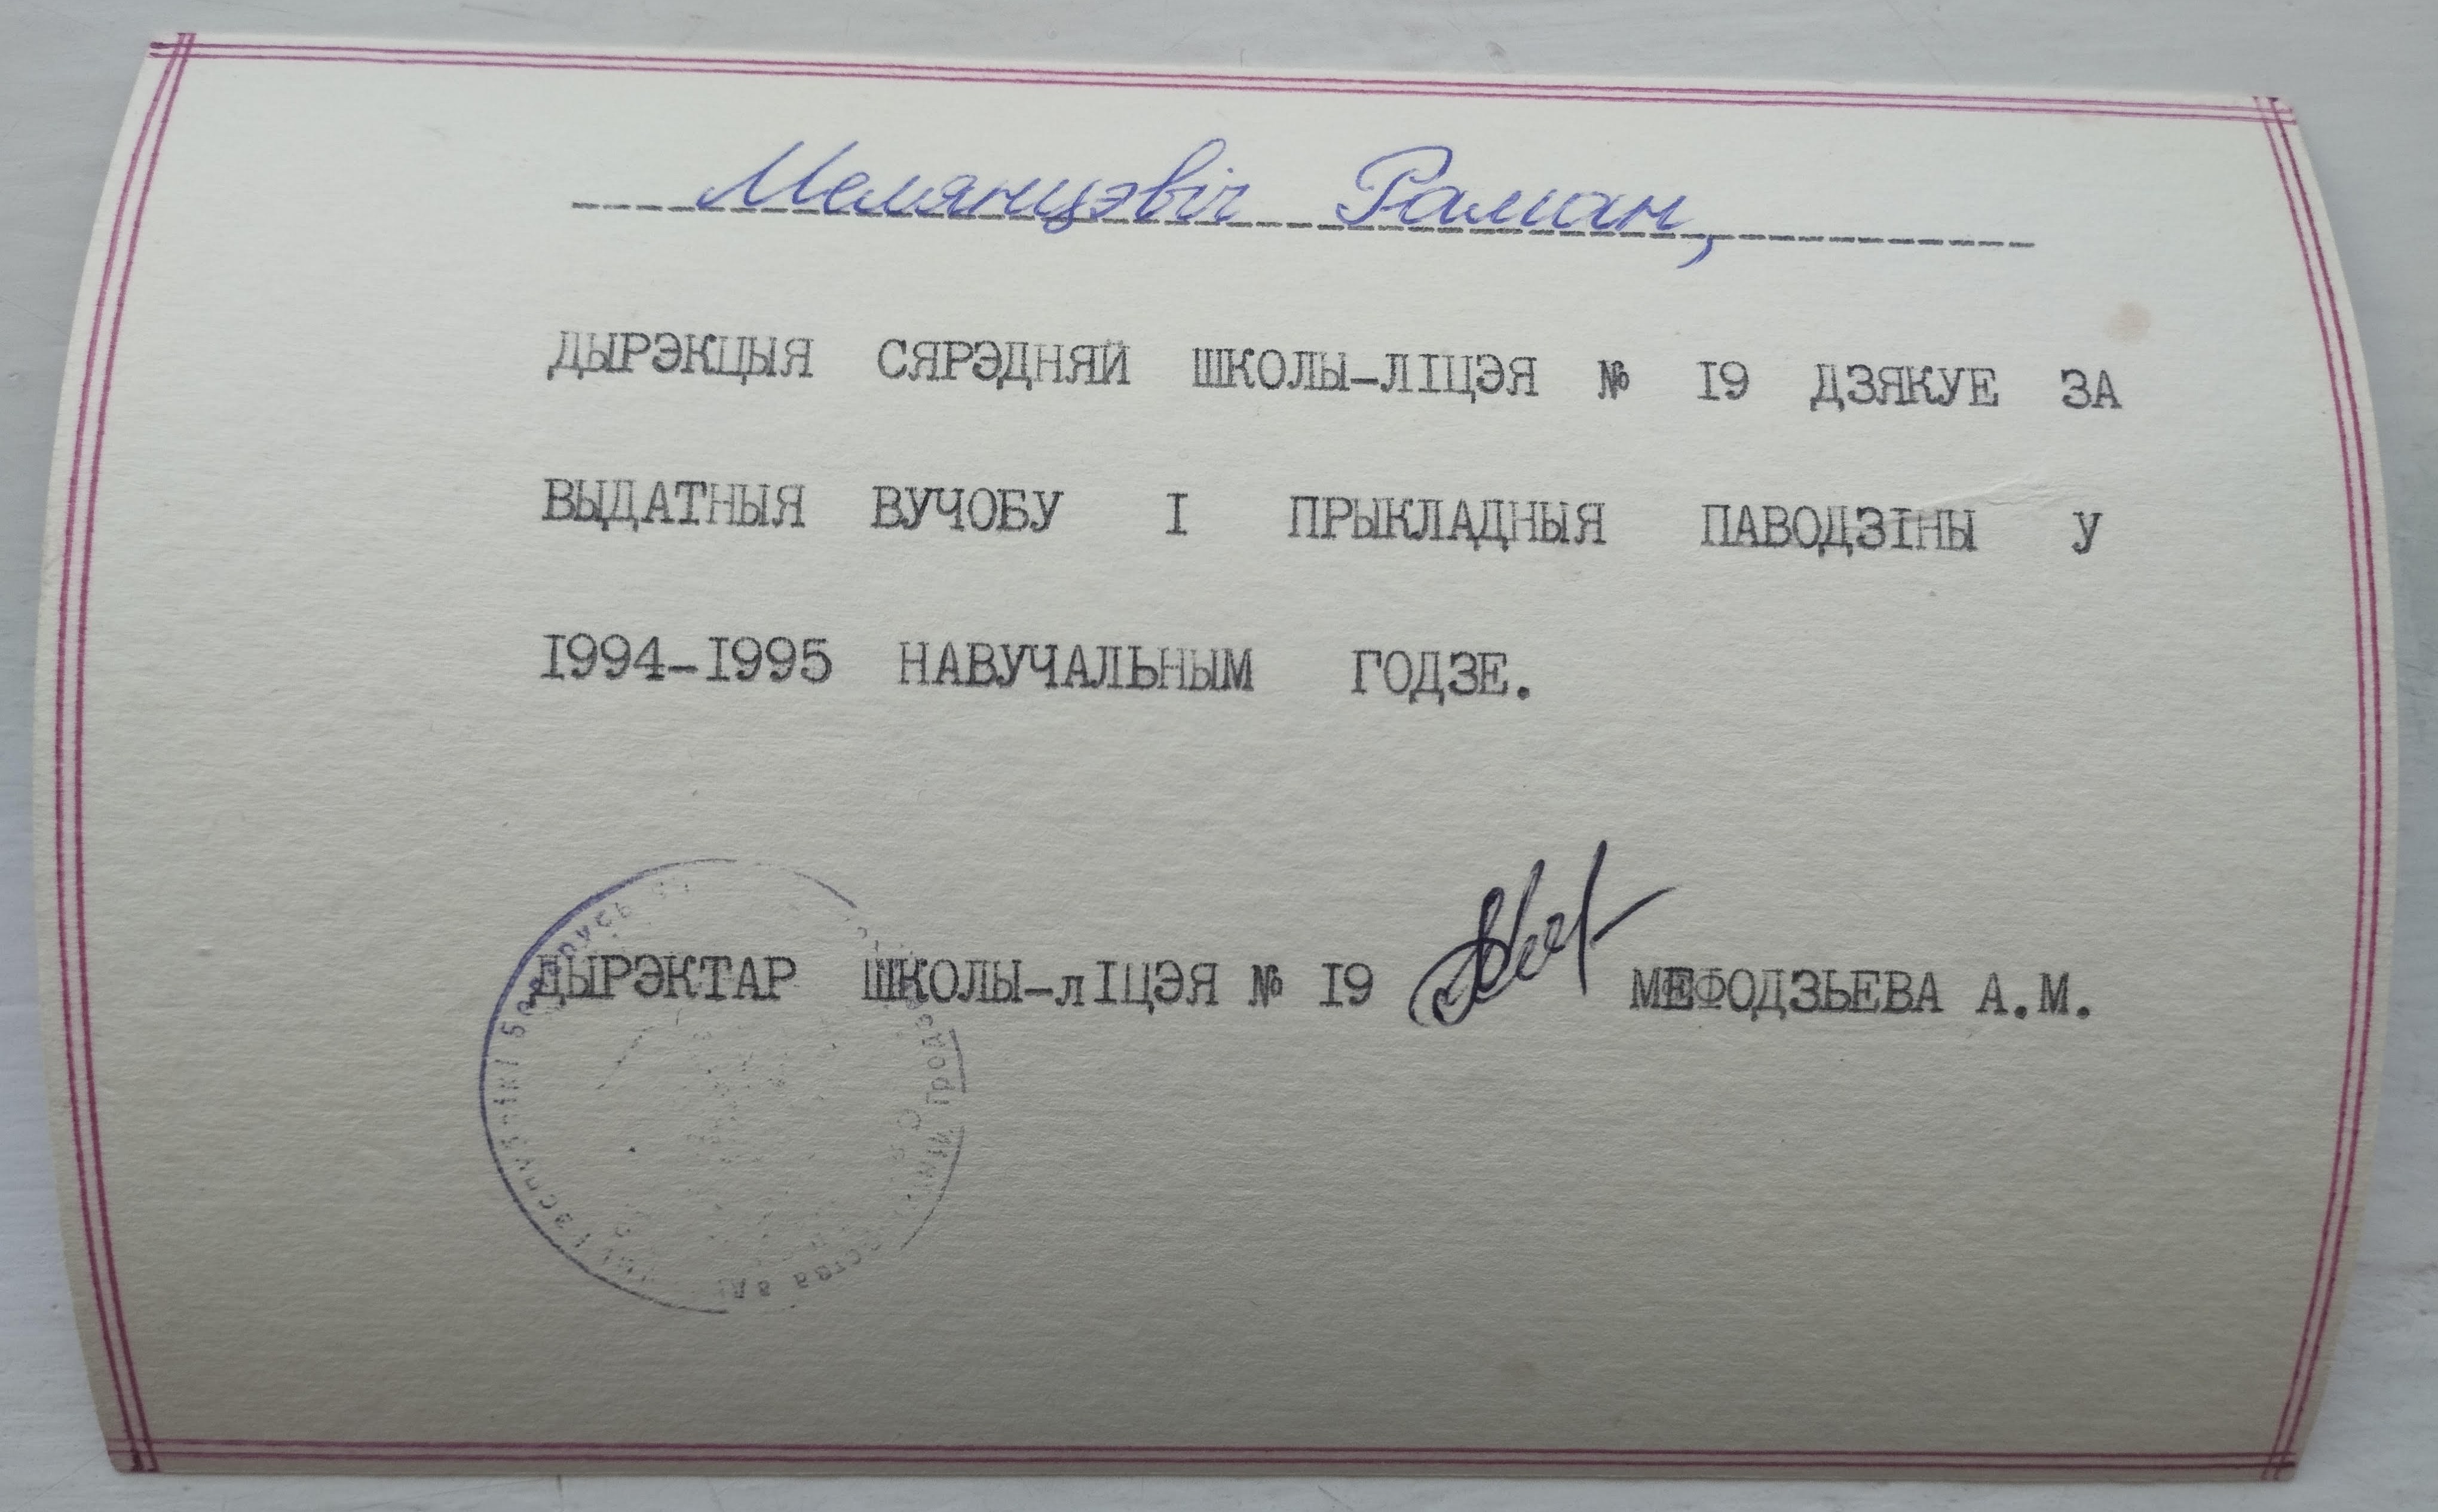 Мелянцэвіч Раман,
ДЫРЭКЦЫЯ СЯРЭДНЯЙ ШКОЛЫ-ЛІЦЭЯ № I9 ДЗЯКУЕ ЗА
ВЫДАТНЫЯ ВУЧОБУ І ПРЫКЛАДНЫЯ ПАВОДЗІНЫ У
I994-I995 НАВУЧАЛЬНЫМ ГОДЗЕ.
ДЫРЭКТАР ШКОЛЫ-лІЦЭЯ № I9 МЕФОДЗЬЕВА А.М.